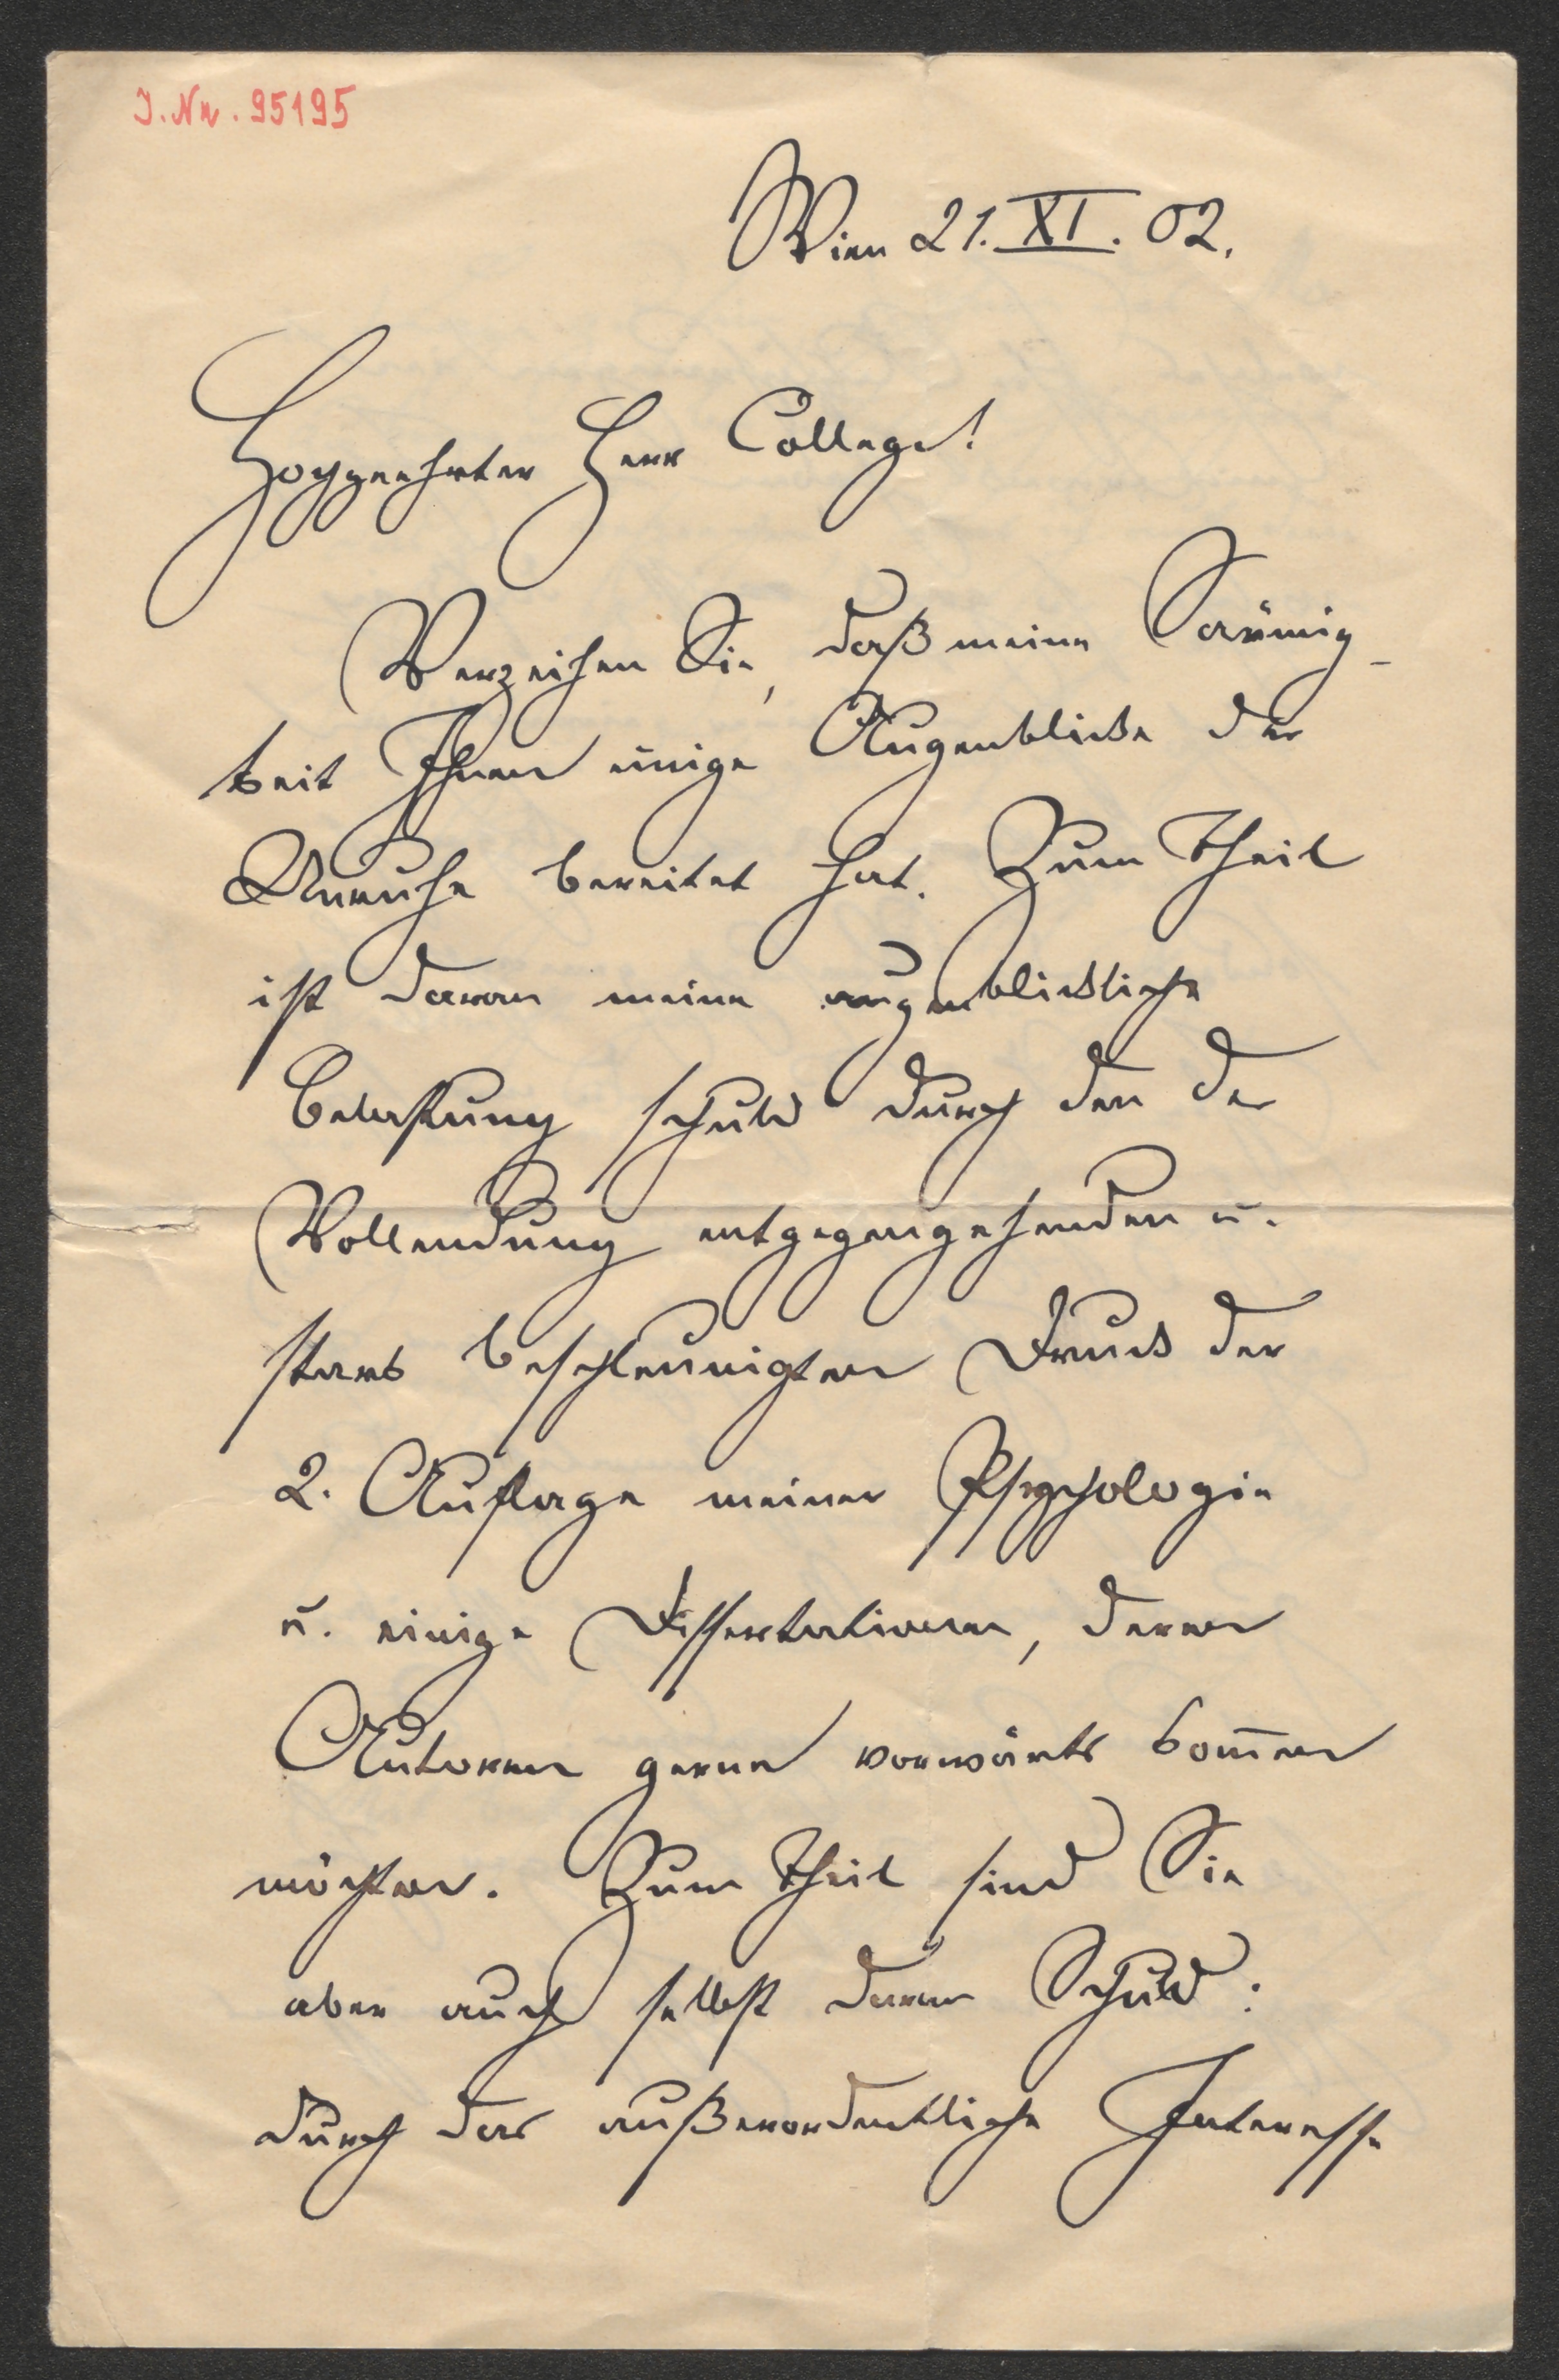 J.Nr. 95195
Wien 21. XI. 02.
Hochgeehrter Herr College!
Verzeihen Sie, daß meine Säumig-
keit Ihnen einige Augenblicke der
Unruhe bereitet hat. Zum Theil
ist daran meine augenblickliche
Belastung schuld durch den der
Vollendung entgegengehenden u.
stark beschleunigten Druck der
2. Auflage meiner Psychologie
u. einige Dissertationen, deren
Autoren gerne vorwärts kom̅en
möchten. Zum Theil sind Sie
aber auch selbst daran Schuld:
durch das außerordentliche Interesse